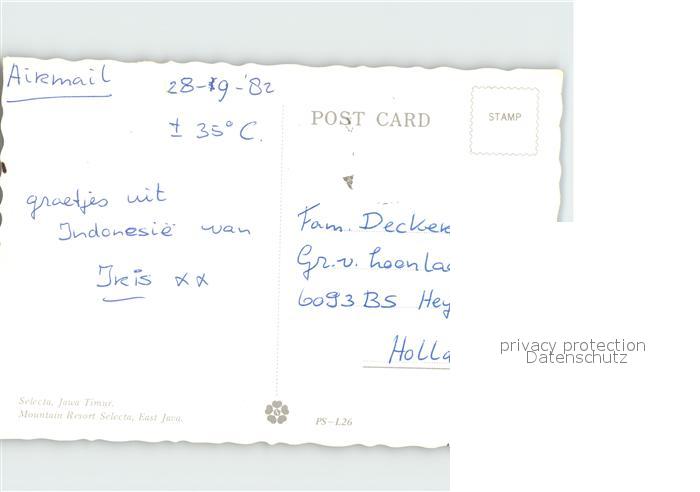 Airmail
28-9-'82
± 35°C.
graetjes uit
Indonesië van
Iris xx
Selecta, Jawa Timur.
Mountain Resort Selecta, East Java.
POST CARD
STAMP
Fam. Decker
Gr. v.
6093 BS Hey
Holla
PS-L26
privacy protection
Datenschutz